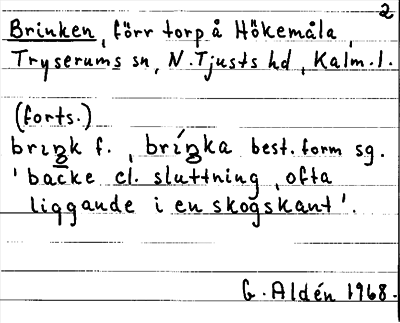 2
Brinken, förr torp å Hökemåla,
Tryserums sn, N. Tjusts hd, Kalm. l.
(forts.)
briŋk f., bríŋka best. form sg.
'backe el. sluttning, ofta
liggande i en skogskant'.
G. Aldén 1968.